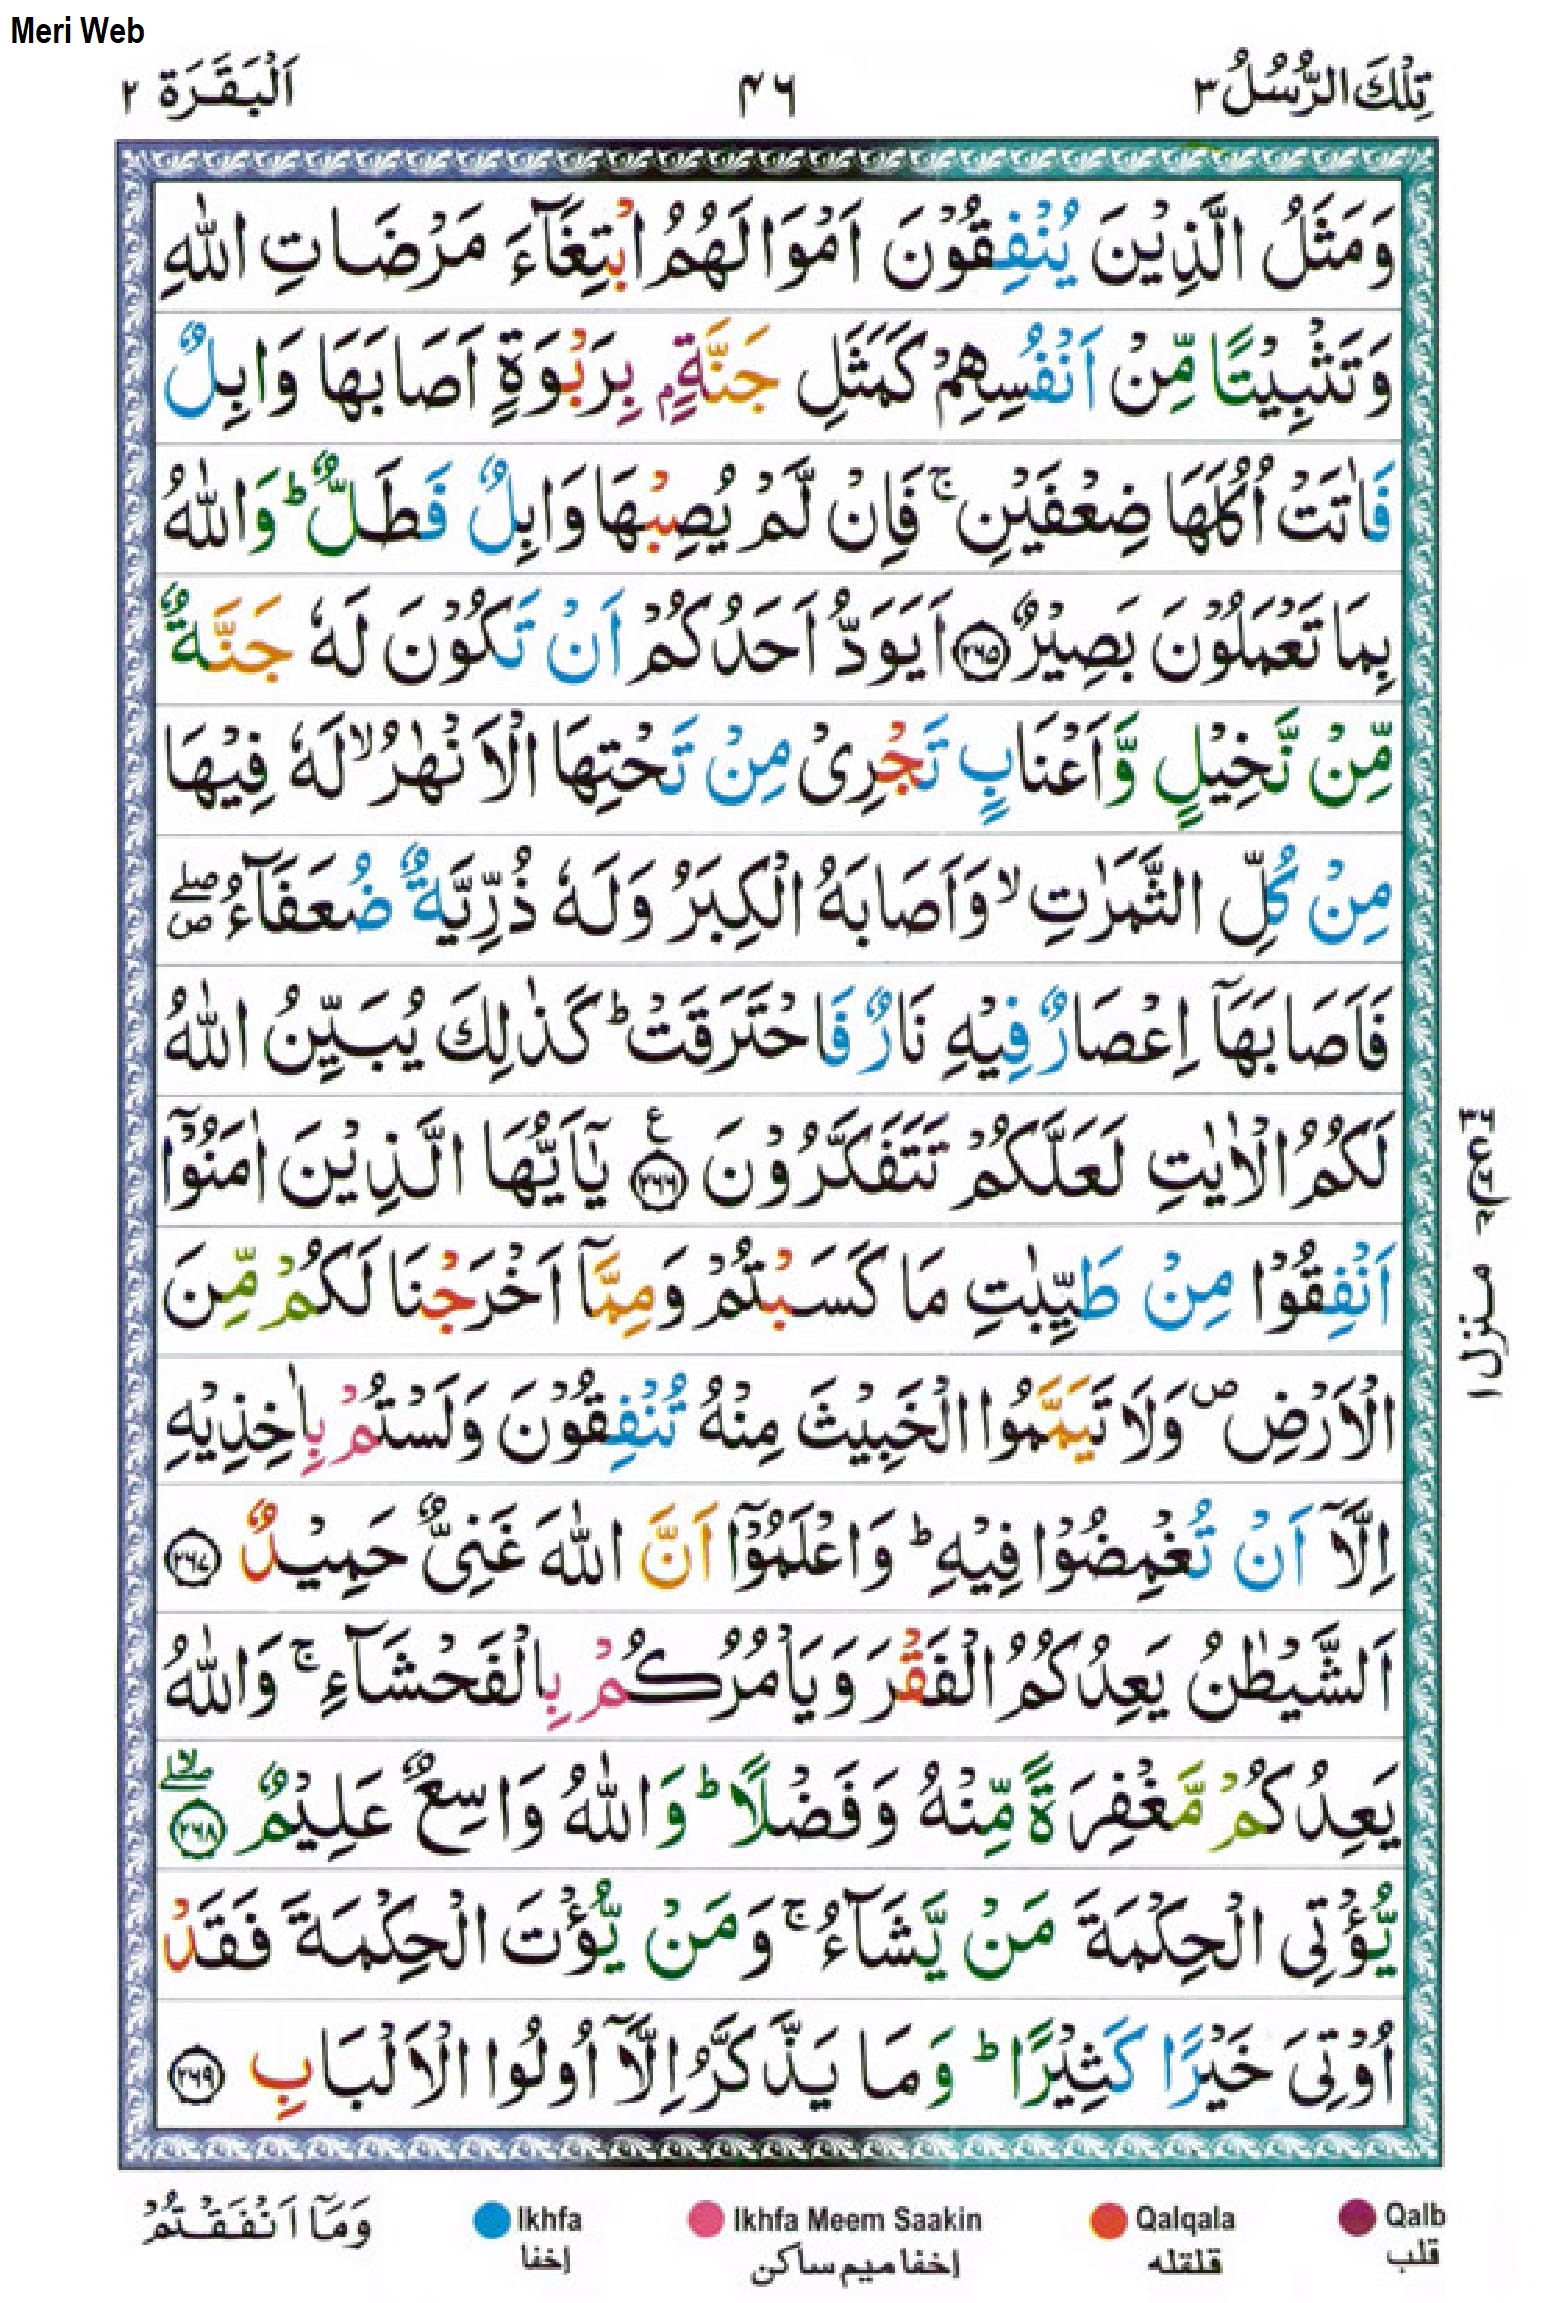 Meri Web
تِلْكَ الرُّسُلُ ٣
۴۶
اَلْبَقَرَة ٢
وَمَثَلُ الَّذِيْنَ يُنْفِقُوْنَ اَمْوَالَهُمُ ابْتِغَآءَ مَرْضَاتِ اللّٰهِ
وَتَثْبِيْتًا مِّنْ اَنْفُسِهِمْ كَمَثَلِ جَنَّةٍۭ بِرَبْوَةٍ اَصَابَهَا وَابِلٌ
فَاٰتَتْ اُكُلَهَا ضِعْفَيْنِ ۚ فَاِنْ لَّمْ يُصِبْهَا وَابِلٌ فَطَلٌّ ؕ وَاللّٰهُ
بِمَا تَعْمَلُوْنَ بَصِيْرٌ ۲۶۵ اَيَوَدُّ اَحَدُكُمْ اَنْ تَكُوْنَ لَهٗ جَنَّةٌ
مِّنْ نَّخِيْلٍ وَّاَعْنَابٍ تَجْرِىْ مِنْ تَحْتِهَا الْاَنْهٰرُ ۙ لَهٗ فِيْهَا
مِنْ كُلِّ الثَّمَرٰتِ ۙ وَاَصَابَهُ الْكِبَرُ وَلَهٗ ذُرِّيَّةٌ ضُعَفَآءُ ۖ ص
فَاَصَابَهَاۤ اِعْصَارٌ فِيْهِ نَارٌ فَاحْتَرَقَتْ ؕ كَذٰلِكَ يُبَيِّنُ اللّٰهُ
لَكُمُ الْاٰيٰتِ لَعَلَّكُمْ تَتَفَكَّرُوْنَ ع ۲۶۶ يٰۤاَيُّهَا الَّذِيْنَ اٰمَنُوْۤا
اَنْفِقُوْا مِنْ طَيِّبٰتِ مَا كَسَبْتُمْ وَمِمَّاۤ اَخْرَجْنَا لَكُمْ مِّنَ
الْاَرْضِ ص وَلَا تَيَمَّمُوا الْخَبِيْثَ مِنْهُ تُنْفِقُوْنَ وَلَسْتُمْ بِاٰخِذِيْهِ
اِلَّاۤ اَنْ تُغْمِضُوْا فِيْهِ ؕ وَاعْلَمُوْۤا اَنَّ اللّٰهَ غَنِىٌّ حَمِيْدٌ ۲۶۷
اَلشَّيْطٰنُ يَعِدُكُمُ الْفَقْرَ وَيَاْمُرُكُمْ بِالْفَحْشَآءِ ۚ وَاللّٰهُ
يَعِدُكُمْ مَّغْفِرَةً مِّنْهُ وَفَضْلًا ؕ وَاللّٰهُ وَاسِعٌ عَلِيْمٌ ۖۙ ۲۶۸
يُّؤْتِى الْحِكْمَةَ مَنْ يَّشَآءُ ۚ وَمَنْ يُّؤْتَ الْحِكْمَةَ فَقَدْ
اُوْتِىَ خَيْرًا كَثِيْرًا ؕ وَمَا يَذَّكَّرُ اِلَّاۤ اُولُوا الْاَلْبَابِ ۲۶۹
منزل ١
وَمَاۤ اَنْفَقْتُمْ
Ikhfa
إخفا
Ikhfa Meem Saakin
إخفا ميم ساكن
Qalqala
قلقله
Qalb
قلب